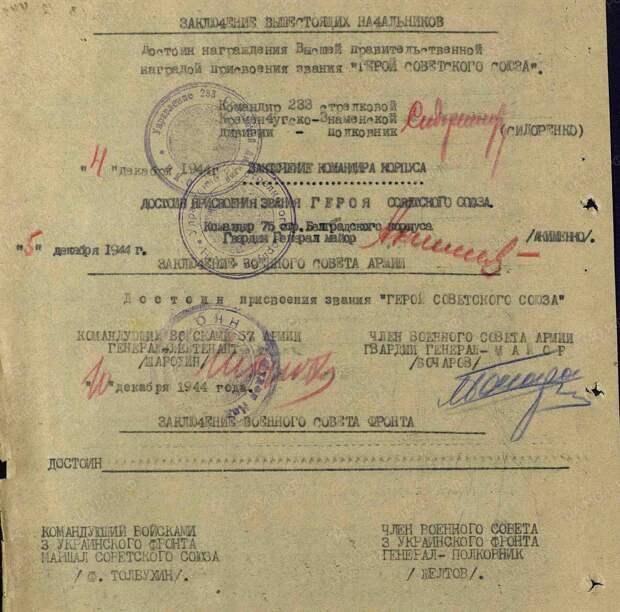 ЗАКЛЮЧЕНИЕ ВЫШЕСТОЯЩИХ НАЧАЛЬНИКОВ
Достоин награждения Высшей правительственной
наградой присвоения звания "ГЕРОЙ СОВЕТСКОГО СОЮЗА".
Управление 233
Командир 233 стрелковой
Кременчугско-Знаменской
дивизии - полковник Сидоренко (СИДОРЕНКО)
"4" декабря 1944 г. ЗАКЛЮЧЕНИЕ КОМАНДИРА КОРПУСА
ДОСТОИН ПРИСВОЕНИЯ ЗВАНИЯ ГЕРОЯ СОВЕТСКОГО СОЮЗА.
Командир 75 стр. Белградского корпуса
Гвардии Генерал майор /АКИМЕНКО/.
"5" декабря 1944 г.
ЗАКЛЮЧЕНИЕ ВОЕННОГО СОВЕТА АРМИИ
Достоин присвоения звания "ГЕРОЙ СОВЕТСКОГО СОЮЗА"
КОМАНДУЮЩИЙ ВОЙСКАМИ 57 АРМИИ
ГЕНЕРАЛ-ЛЕЙТЕНАНТ
/ШАРОХИН/
"10" декабря 1944 года.
ЧЛЕН ВОЕННОГО СОВЕТА АРМИИ
ГВАРДИИ ГЕНЕРАЛ-МАЙОР
/БОЧАРОВ/
ЗАКЛЮЧЕНИЕ ВОЕННОГО СОВЕТА ФРОНТА
ДОСТОИН
КОМАНДУЮЩИЙ ВОЙСКАМИ
3 УКРАИНСКОГО ФРОНТА
МАРШАЛ СОВЕТСКОГО СОЮЗА
/Ф. ТОЛБУХИН/.
ЧЛЕН ВОЕННОГО СОВЕТА
3 УКРАИНСКОГО ФРОНТА
ГЕНЕРАЛ-ПОЛКОВНИК
/ЖЕЛТОВ/.